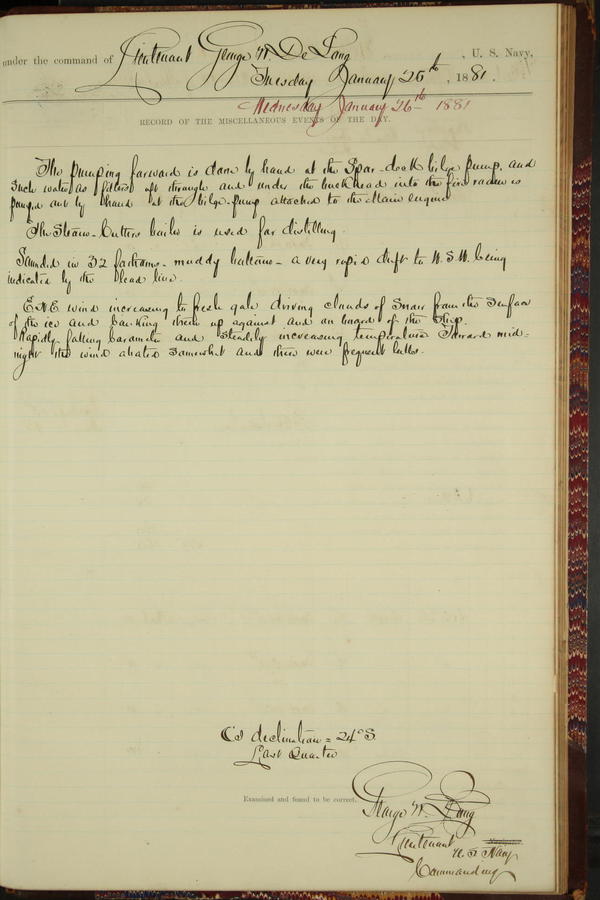 under the command of Lieutenant George W. De Long, U. S. Navy,
Tuesday January 25th, 1881.
Wednesday January 26th 1881
RECORD OF THE MISCELLANEOUS EVENTS OF THE DAY.
The pumping forward is done by hand at the Spar-deck bilge pump, and
such water as filters aft through and under the bulkhead into the fire room is
pumped out by hand at the bilge-pump attached to the Main engine
The Steam-Cutters boiler is used for distilling.
Sounded in 32 fathoms - muddy bottom - a very rapid drift to W.S.W. being
indicated by the lead line.
E.N.E. wind increasing to fresh gale driving clouds of snow from the surface
of the ice and banking them up against and on board of the Ship.
Rapidly falling barometer and steadily increasing temperature Toward mid-
night the wind abated somewhat and there were frequent lulls.
☾'s declination = 24° S.
Last Quarter
Examined and found to be correct.
George W. De Long
Lieutenant
U.S. Navy
Commanding